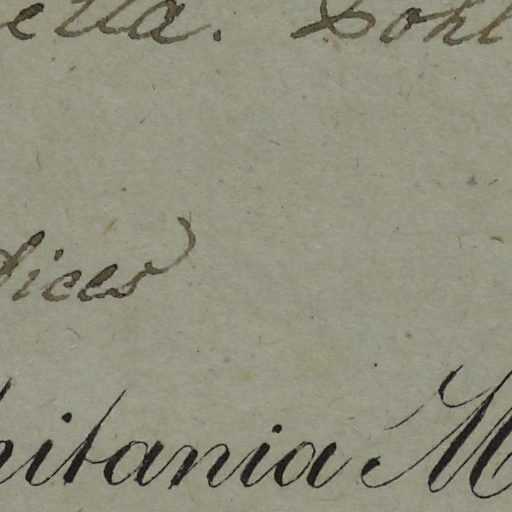 etta. Pohl
dices
hitania M